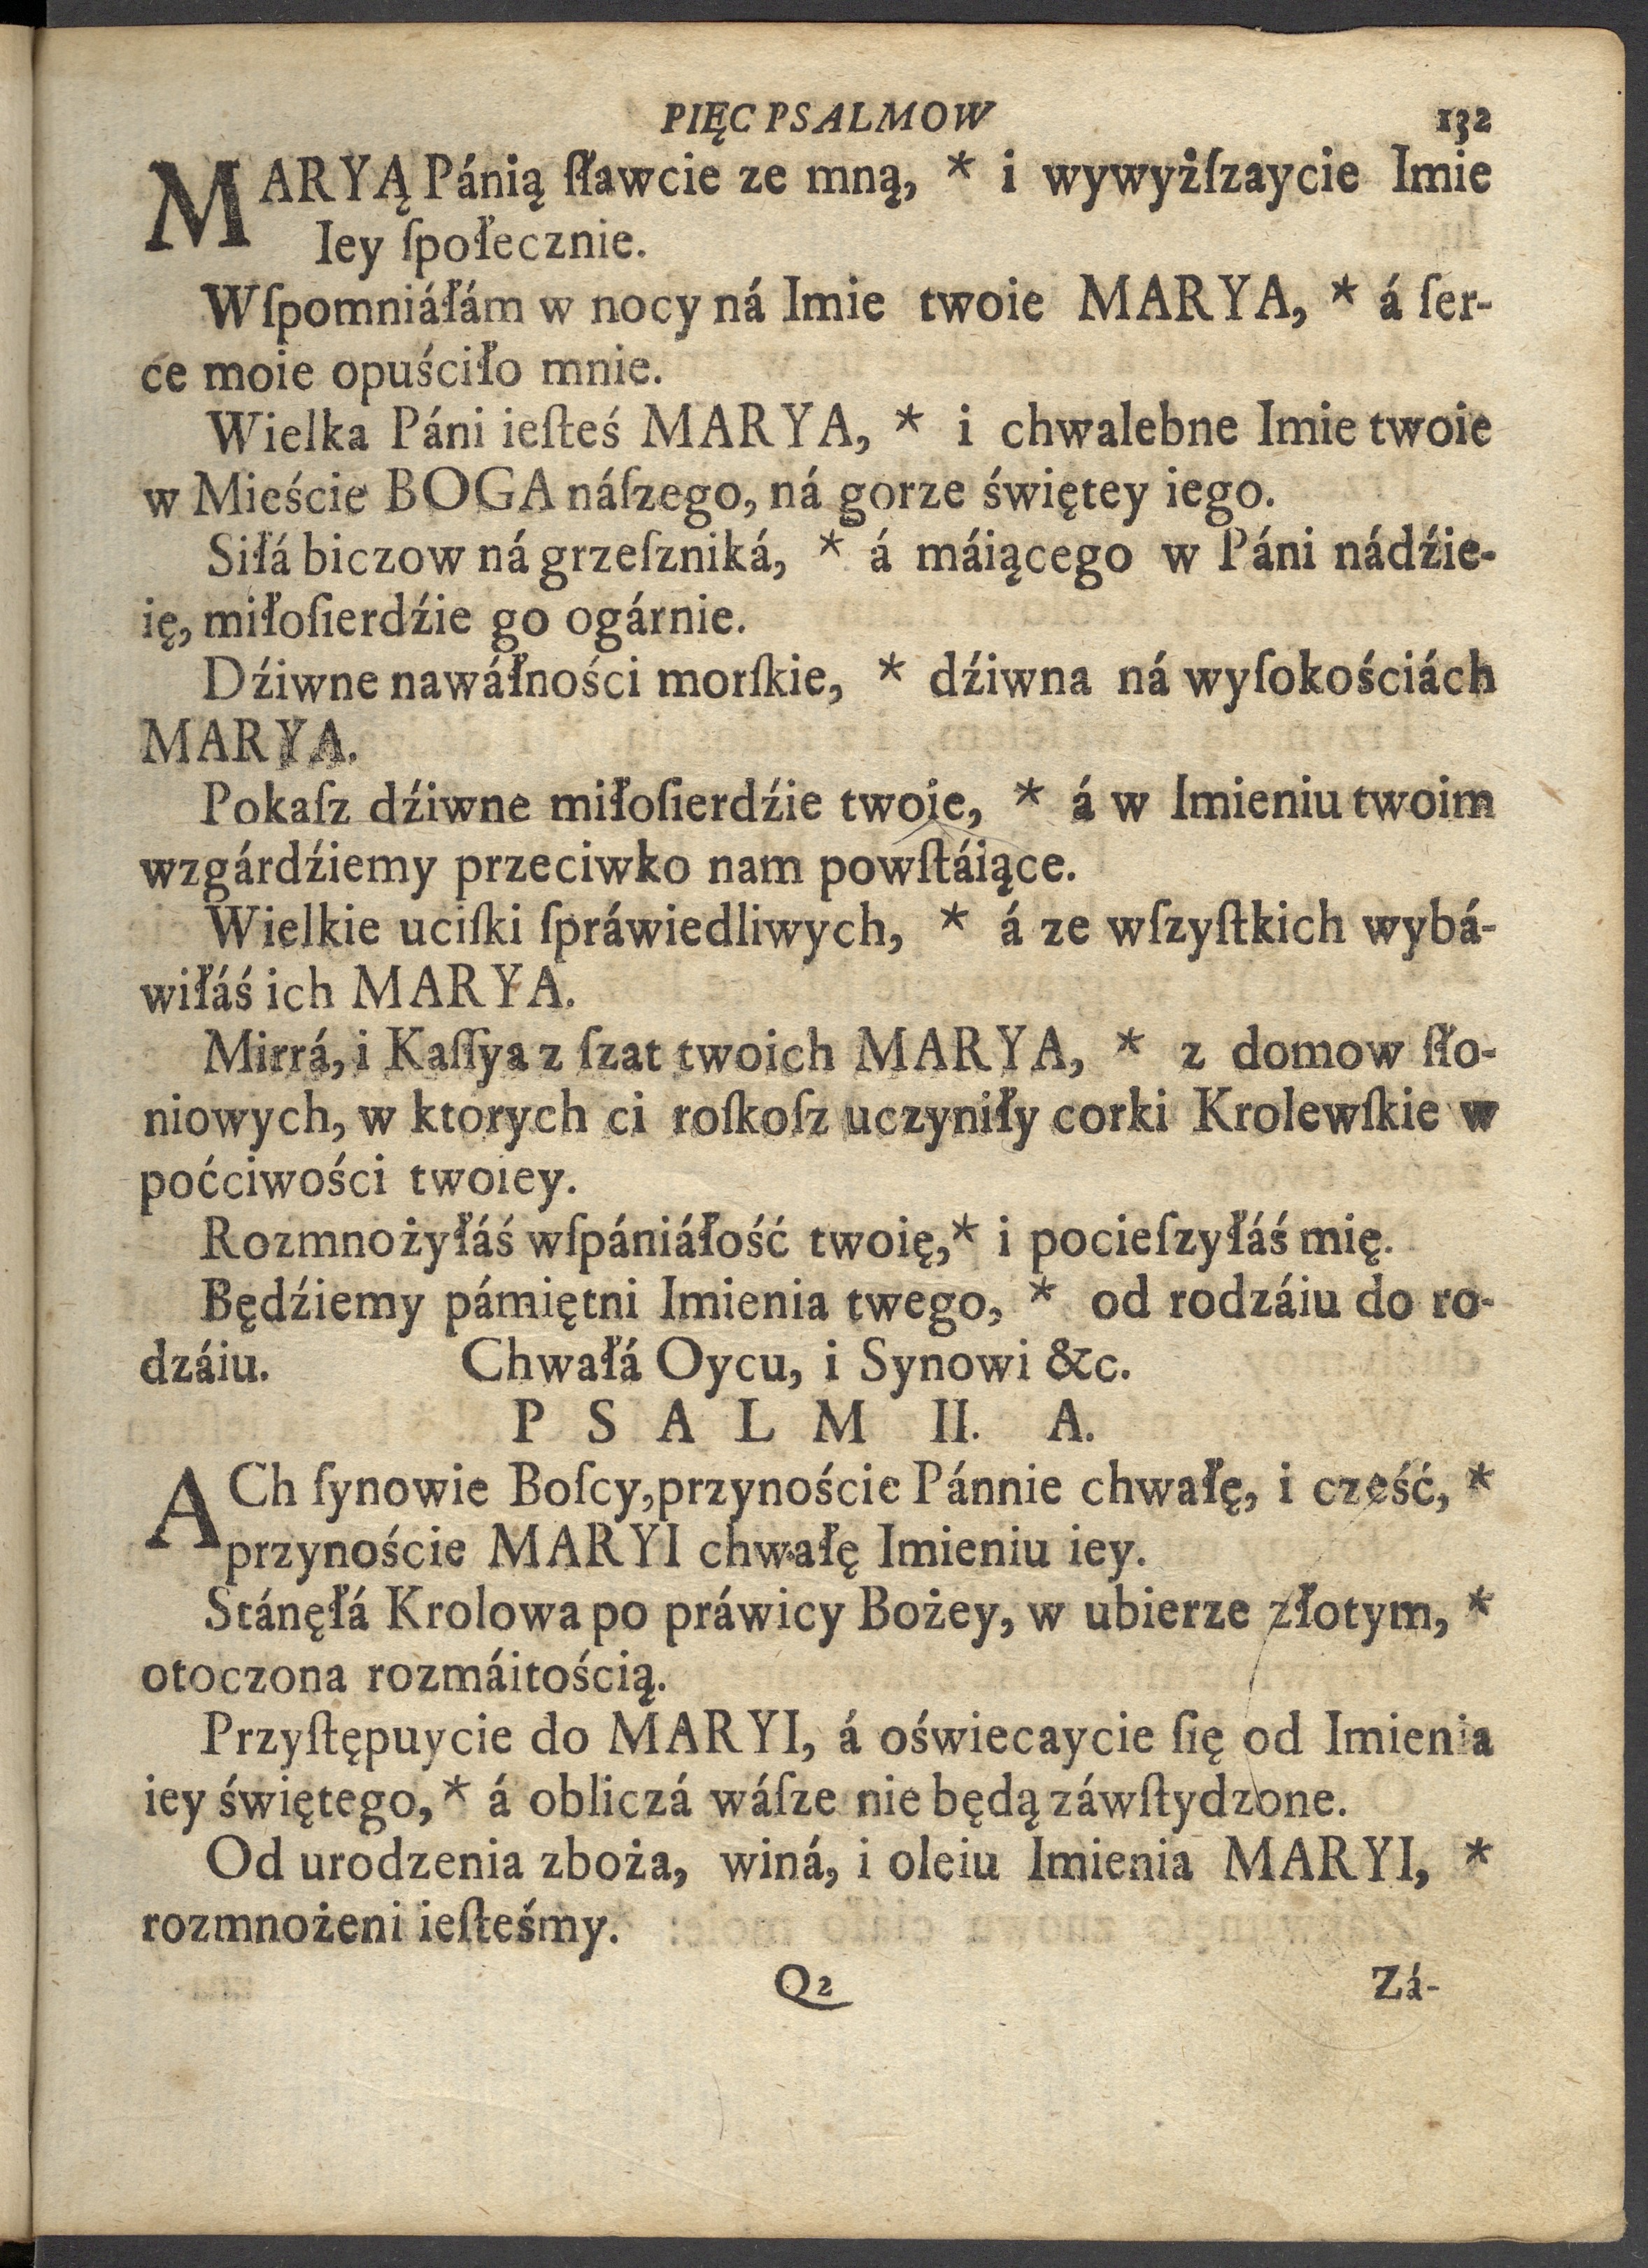 PIĘC PSALMOW 132
MARYĄ Pánią ſławcie ze mną, * i wywyżſzaycie Imie
Iey ſpołecznie.
Wſpomniáłám w nocy ná Imie twoie MARYA, * á ſer-
ce moie opuściło mnie.
Wielka Páni ieſteś MARYA, * i chwalebne Imie twoie
w Mieście BOGA náſzego, ná gorze świętey iego.
Siłá biczow ná grzeſzniká, * á máiącego w Páni nádźie-
ię, miłoſierdźie go ogárnie.
Dźiwne nawáłności morſkie, * dźiwna ná wyſokościách
MARYA.
Pokaſz dźiwne miłoſierdźie twoie, * á w Imieniu twoim
wzgárdźiemy przeciwko nam powſtáiące.
Wielkie uciſki ſpráwiedliwych, * á ze wſzyſtkich wybá-
wiłáś ich MARYA.
Mirrá, i Kaſſya z ſzat twoich MARYA, * z domow ſło-
niowych, w ktorych ci roſkoſz uczyniły corki Krolewſkie w
poćciwości twoiey.
Rozmnożyłáś wſpániáłość twoię,* i pocieſzyłáś mię.
Będźiemy pámiętni Imienia twego, * od rodzáiu do ro-
dzáiu. Chwałá Oycu, i Synowi &c.
PSALM II. A.
ACh ſynowie Boſcy,przynoście Pánnie chwałę, i cześć, *
przynoście MARYI chwałę Imieniu iey.
Stánęłá Krolowa po práwicy Bożey, w ubierze złotym, *
otoczona rozmáitością.
Przyſtępuycie do MARYI, á oświecaycie ſię od Imienia
iey świętego,* á obliczá wáſze nie będą záwſtydzone.
Od urodzenia zboża, winá, i oleiu Imienia MARYI, *
rozmnożeni ieſteśmy.
Q2 Zá-